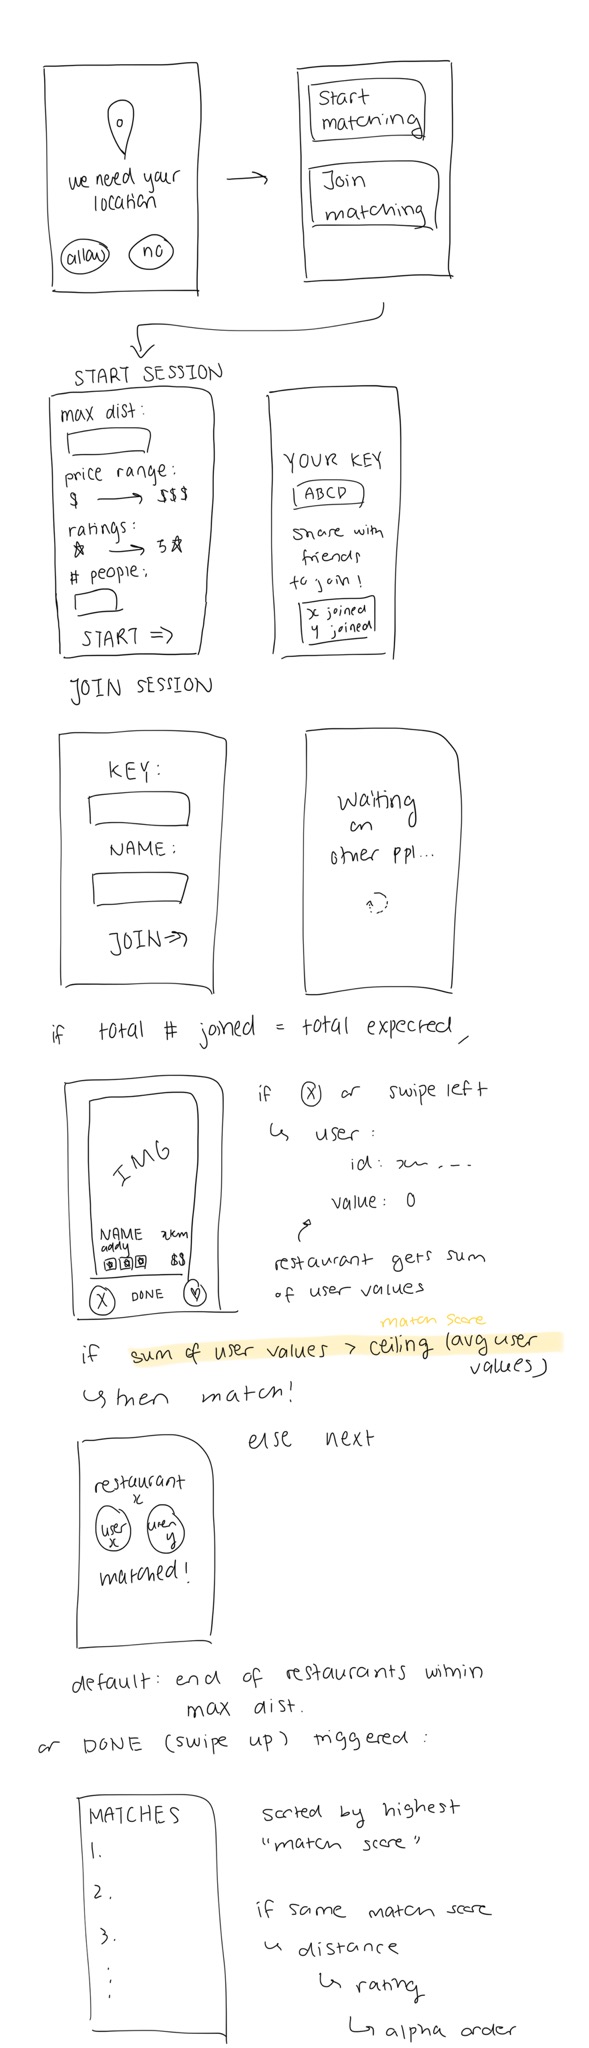 we need your
location
allow
no
Start
matching
Join
matching
START SESSION
max dist:
price range:
$ → $$$
ratings:
☆ → 5☆
# people:
START ⇒
YOUR KEY
ABCD
share with
friends
to join!
x joined
y joined
JOIN SESSION
KEY:
NAME:
JOIN ⇒
Waiting
on
other ppl...
if total # joined = total expected,
IMG
NAME xkm
addy
$$
X DONE ♡
if Ⓧ or swipe left
↳ user:
id:
value: 0
restaurant gets sum
of user values
match score
if sum of user values > ceiling (avg user
values)
↳ then match!
else next
restaurant
x
user
x
user
y
matched!
default: end of restaurants within
max dist.
or DONE (swipe up) triggered:
MATCHES
1.
2.
3.
sorted by highest
"match score"
if same match score
↳ distance
↳ rating
↳ alpha order